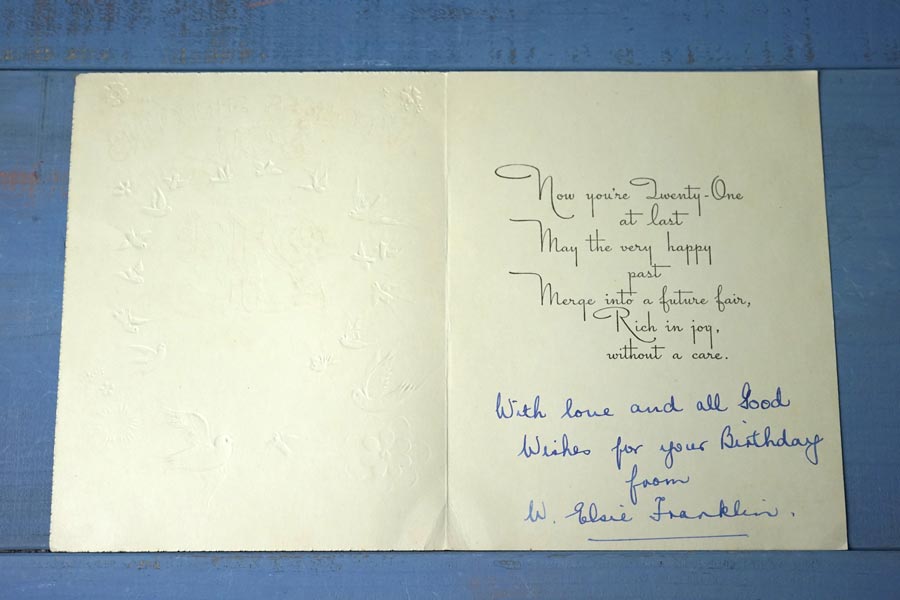 Now you're Twenty-One
at last
May the very happy
past
Merge into a future fair,
Rich in joy,
without a care.
With love and all Good
Wishes for your Birthday
from
W. Elsie Franklin.